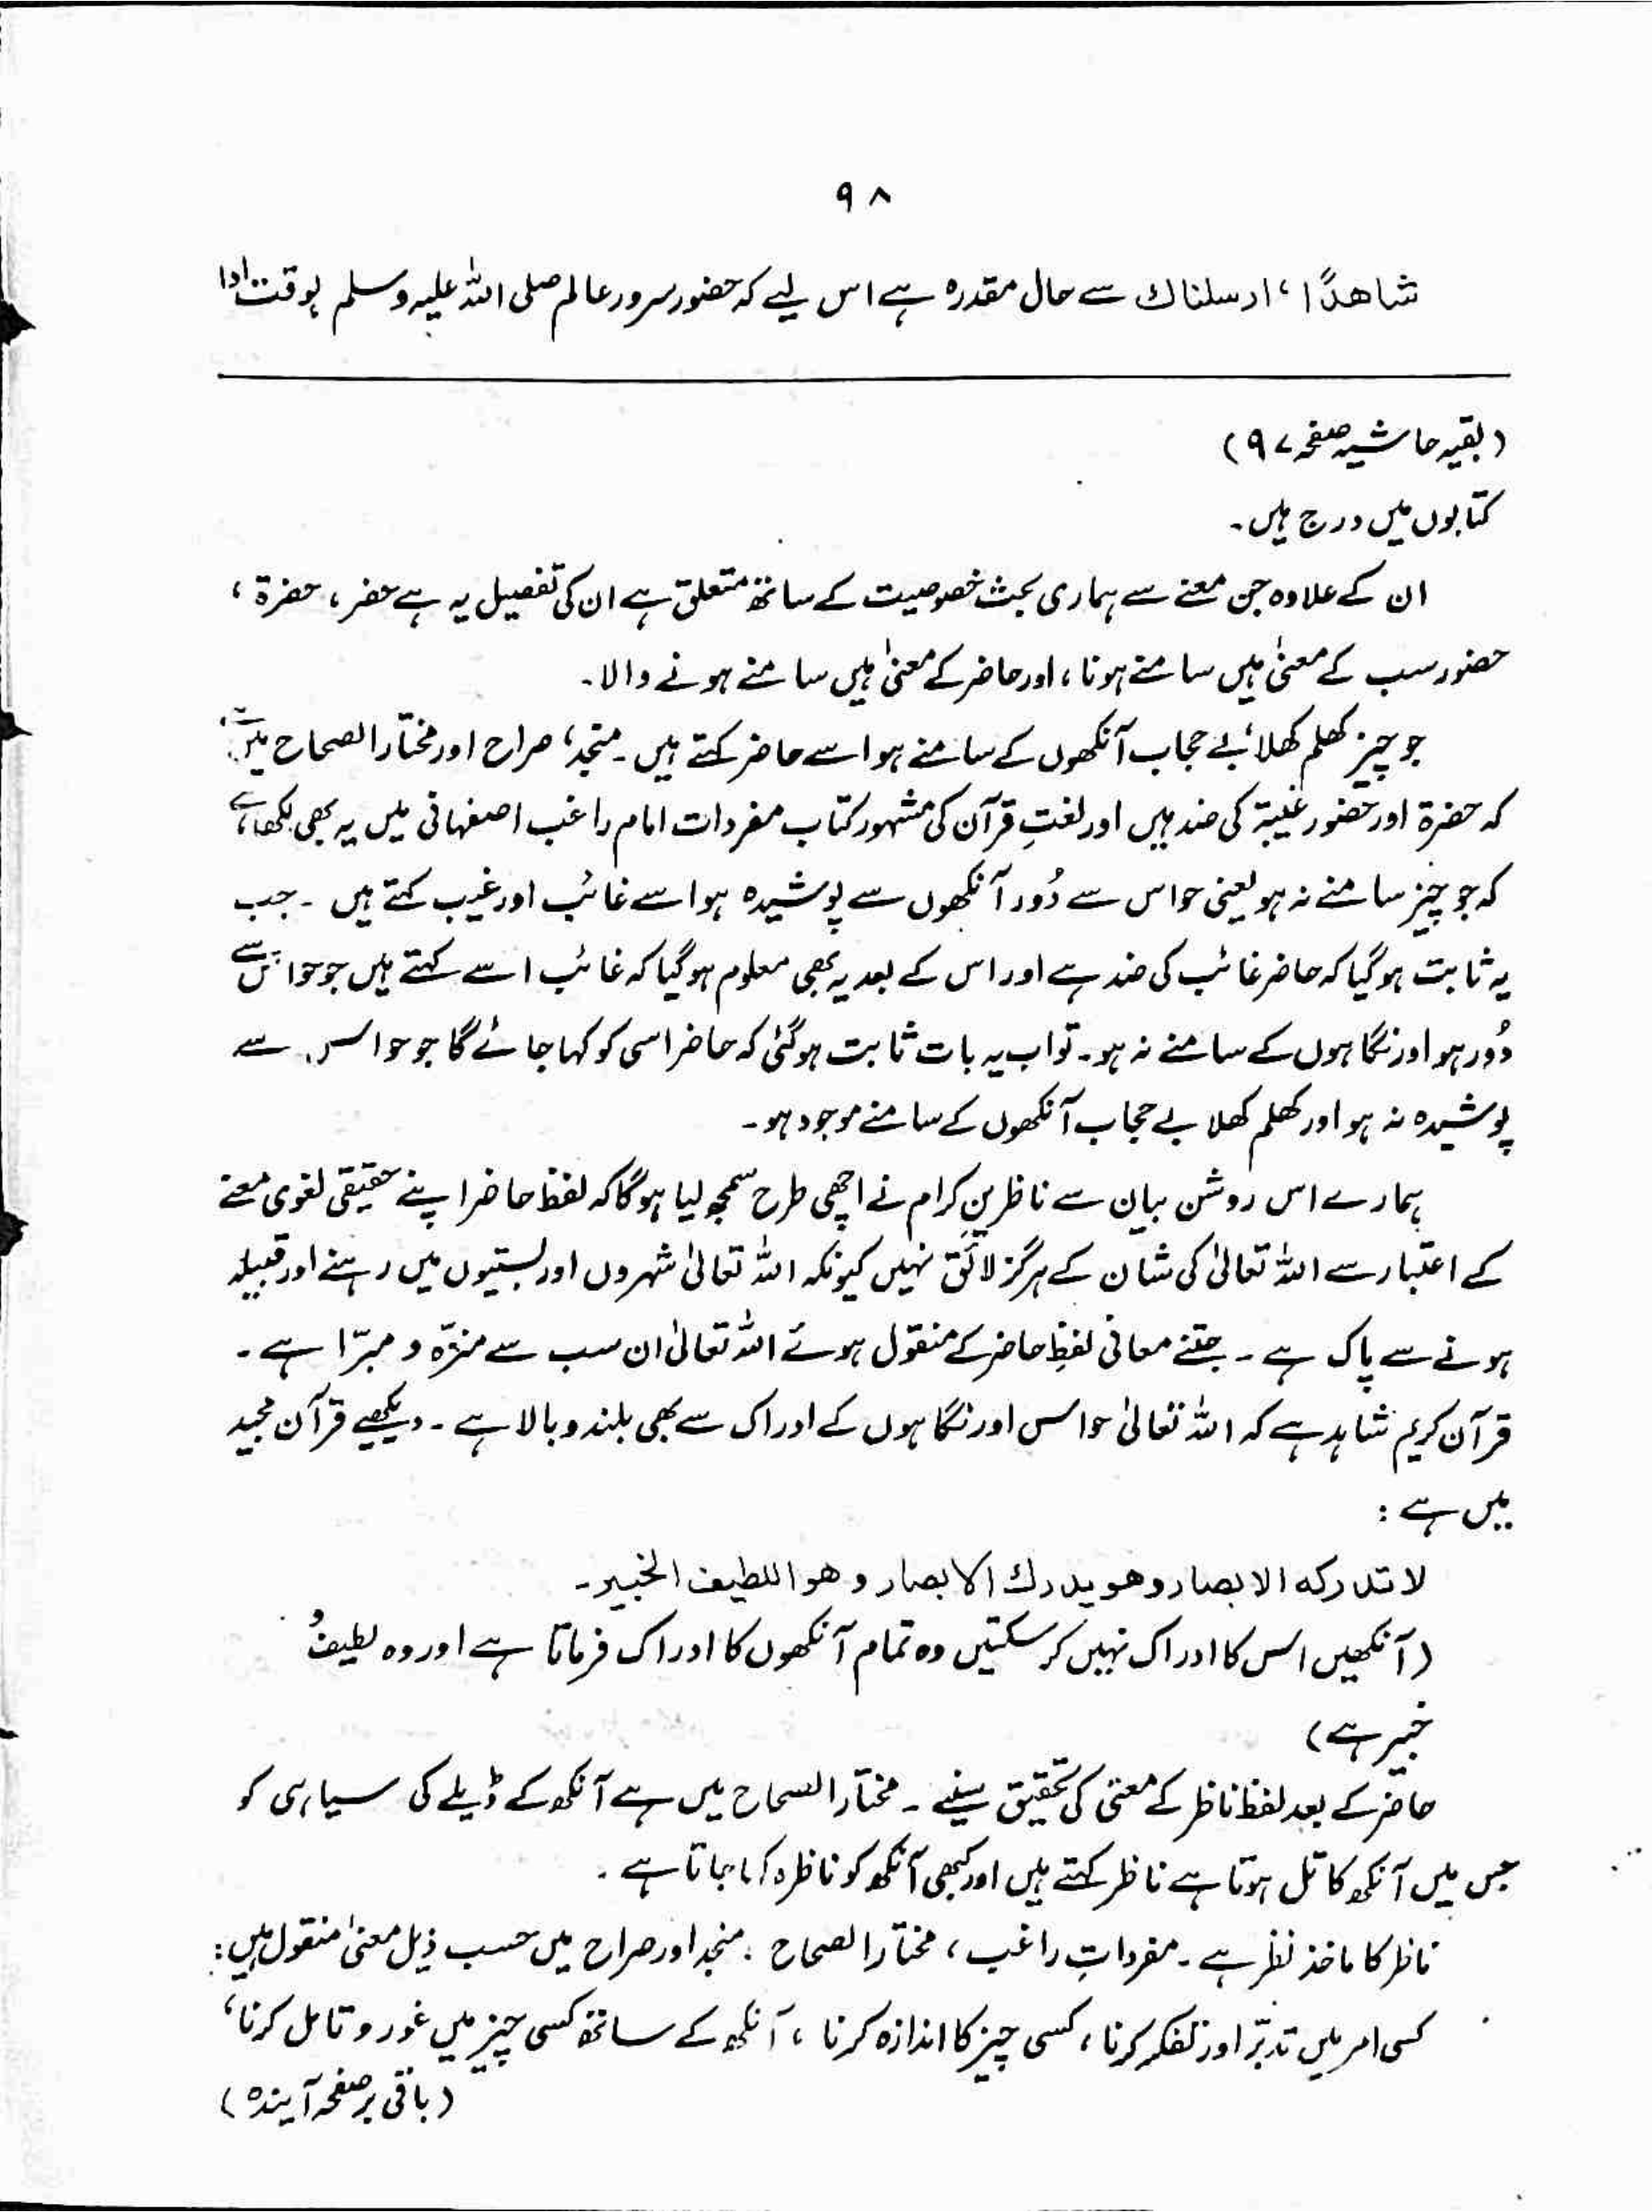 ۹۸
شاھدًا ، ارسلناك سے حال مقدرہ ہے اس لیے کہ حضور سرور عالم صلی اللہ علیہ وسلم بوقت ادا
(بقیہ حاشیہ صفحہ ۹۷)
کتابوں میں درج ہیں۔
ان کے علاوہ جن معنے سے ہماری بحث خصوصیت کے ساتھ متعلق ہے ان کی تفصیل یہ ہے حضر ، حضرۃ ،
حضور سب کے معنیٰ ہیں سامنے ہونا ، اور حاضر کے معنیٰ ہیں سامنے ہونے والا۔
جو چیز کھلم کھلا بے حجاب آنکھوں کے سامنے ہو اسے حاضر کہتے ہیں۔ منجد ، صراح اور مختار الصحاح میں ہے
کہ حضرۃ اور حضور غیبۃ کی ضد ہیں اور لغتِ قرآن کی مشہور کتاب مفردات امام راغب اصفہانی میں یہ بھی لکھا ہے
کہ جو چیز سامنے نہ ہو یعنی حواس سے دُور آنکھوں سے پوشیدہ ہو اسے غائب اور غیب کہتے ہیں ۔ جب
یہ ثابت ہو گیا کہ حاضر غائب کی ضد ہے اور اس کے بعد یہ بھی معلوم ہو گیا کہ غائب اسے کہتے ہیں جو حواس سے
دُور ہو اور نگاہوں کے سامنے نہ ہو۔ تو اب یہ بات ثابت ہو گئی کہ حاضر اسی کو کہا جائے گا جو حواس سے
پوشیدہ نہ ہو اور کھلم کھلا بے حجاب آنکھوں کے سامنے موجود ہو۔
ہمارے اس روشن بیان سے ناظرینِ کرام نے اچھی طرح سمجھ لیا ہو گا کہ لفظ حاضر اپنے حقیقی لغوی معنے
کے اعتبار سے اللہ تعالیٰ کی شان کے ہرگز لائق نہیں کیونکہ اللہ تعالیٰ شہروں اور بستیوں میں رہنے اور قبیلہ
ہونے سے پاک ہے ۔ جتنے معانی لفظِ حاضر کے منقول ہوئے اللہ تعالیٰ ان سب سے منزّہ و مبرّا ہے ۔
قرآن کریم شاہد ہے کہ اللہ تعالیٰ حواس اور نگاہوں کے ادراک سے بھی بلند و بالا ہے ۔ دیکھیے قرآن مجید
میں ہے :
لا تدركه الابصار وهو يدرك الابصار و هو اللطيف الخبير۔
(آنکھیں اس کا ادراک نہیں کر سکتیں وہ تمام آنکھوں کا ادراک فرماتا ہے اور وہ لطیف و
خبیر ہے)
حاضر کے بعد لفظ ناظر کے معنی کی تحقیق سنیے ۔ مختار الصحاح میں ہے آنکھ کے ڈیلے کی سیاہی کو
جس میں آنکھ کا تل ہوتا ہے ناظر کہتے ہیں اور کبھی آنکھ کو ناظرہ کہا جاتا ہے ۔
ناظر کا ماخذ نظر ہے ۔ مفرداتِ راغب ، مختار الصحاح ، منجد اور صراح میں حسب ذیل معنیٰ منقول ہیں :
کسی امر میں تدبّر اور تفکر کرنا ، کسی چیز کا اندازہ کرنا ، آنکھ کے ساتھ کسی چیز میں غور و تامل کرنا ،
(باقی برصفحہ آیندہ)